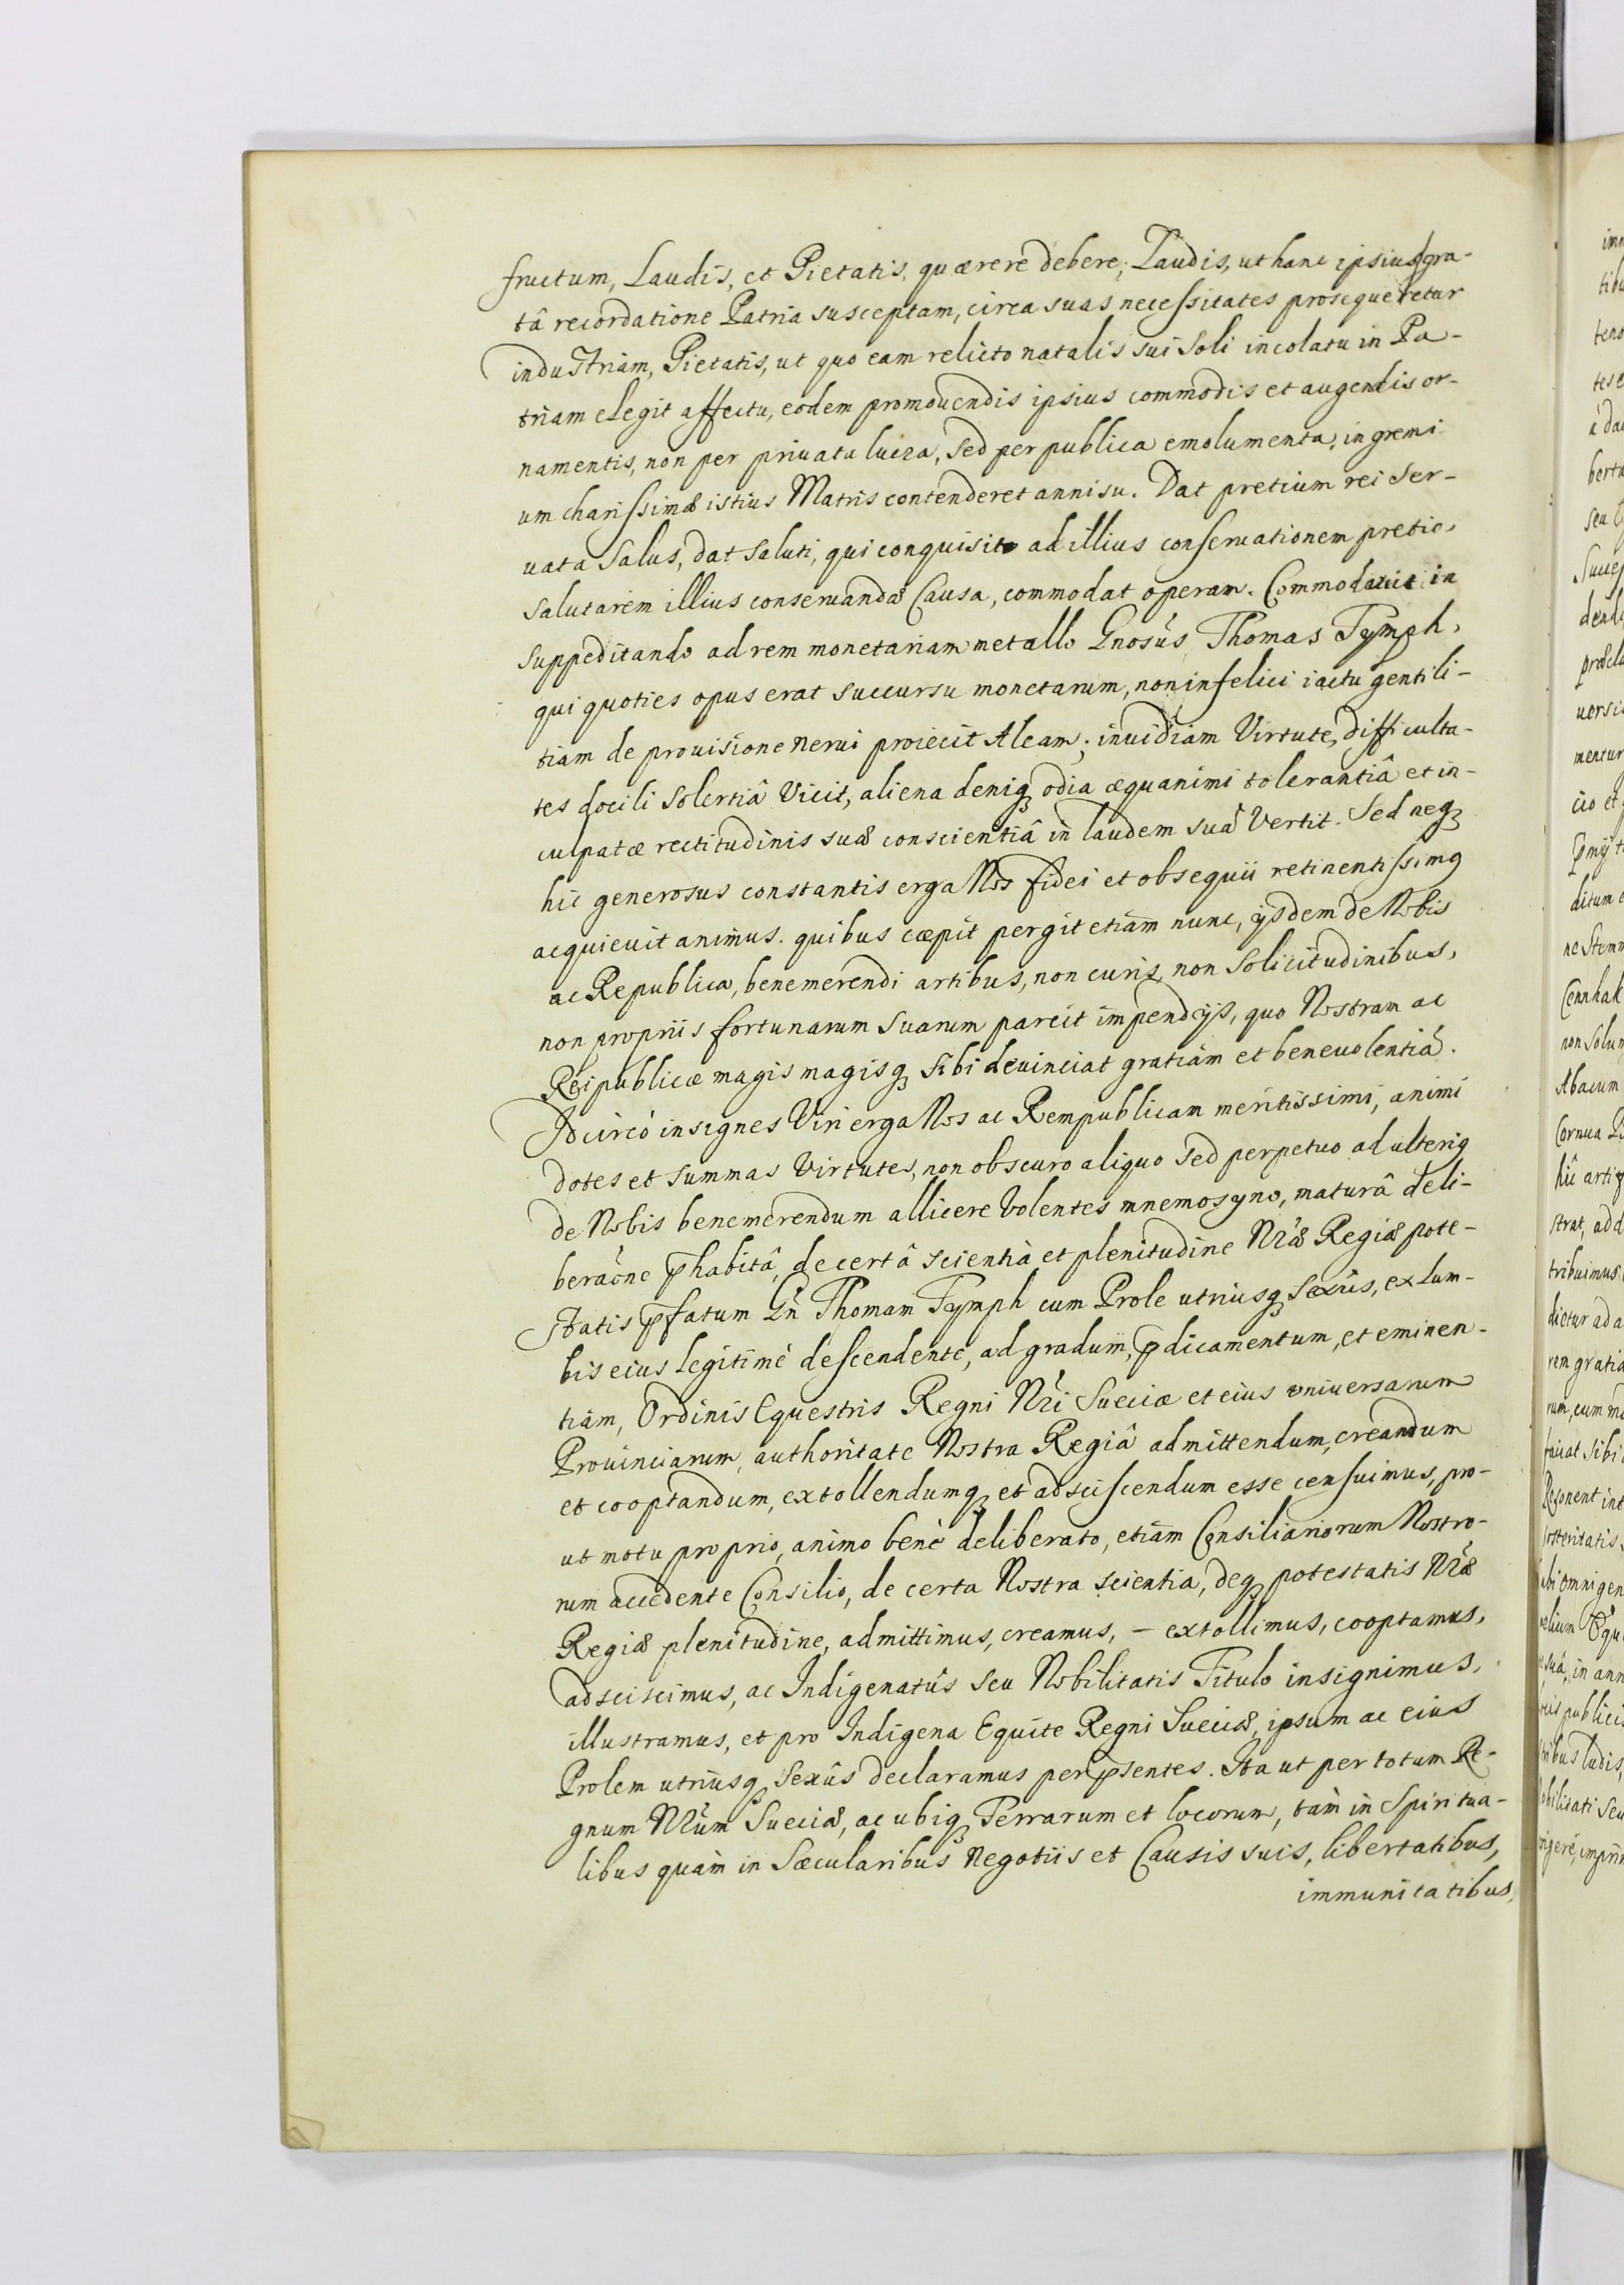 fructum, Laudis, et Pietatis, quærere debere; Laudis, ut hanc ipsius gra-
tâ recordatione Patria susceptam, circa suas necessitates prosequeretur
industriam, Pietatis, ut quo eam relicto natalis sui soli incolatu in Pa-
triam elegit affectu, eodem promouendis ipsius commodis et augendis or-
namentis, non per priuata lucra, sed per publica emolumenta, in gremi
um charissimæ istius Matris contenderet annisu. Dat pretium rei ser-
uata Salus, dat saluti, qui conquisito ad illius conseruationem pretio,
salutarem illius conseruandæ Causa, commodat operam. Commodauit in
suppeditando ad rem monetariam metallo Gnosús Thomas Tymph,
qui quoties opus erat succursu monetarum, non infelici iactu gentili-
tiam de prouisione nerui proiecit Aleam; inuidiam Virtute, difficulta-
tes docili solertiâ Vicit, aliena deniq odia æquanimi tolerantiâ et in-
culpatæ rectitudinis suæ conscientiâ in laudem suã Vertit. Sed neq
hic generosus constantis erga Nos fidei et obsequii retinentissimq
acquieuit animus. quibus cæpit pergit etiam nunc, ijsdem de Nobis
ac Republica, benemerendi artibus, non curis, non Solicitudinibus,
non propriis fortunarum suarum parcit impendijs, quo Nostram ac
Reipublicæ magis magisq sibi deuinciat gratiam et beneuolentiã.
Idcircò insignes Viri erga Nos ac Rempublicam meritissimi, animi
dotes et summas Virtutes, non obscuro aliquo sed perpetuo ad ulteriq
de Nobis benemerendum allicere Volentes mnemosyno, maturâ deli-
beraõne p̃habitâ, de certâ scientiâ et plenitudine Nræ Regiæ pote-
statis p̃fatum Gñ Thomam Tymph cum Prole utriusq Sexûs, ex lum-
bis eius legitimè descendente, ad gradum, p̃dicamentum, et eminen-
tiam, Ordinis Equestris Regni Nri Sueciæ et eius vniuersarum
Prouinciarum, authoritate Nostra Regiâ admittendum, creandum
et cooptandum, extollendumq et adsciscendum esse censuimus, pro-
ut motu proprio, animo benè deliberato, etiam Consiliariorum Nostro-
rum accedente Consilio, de certa Nostra scientia, deq potestatis Nræ
Regiæ plenitudine, admittimus, creamus, - extollimus, cooptamus,
adsciscimus, ac Indigenatûs seu Nobilitatis Titulo insignimus,
illustramus, et pro Indigena Equite Regni Sueciæ, ipsum ac eius
Prolem utriusq Sexûs declaramus per p̃sentes. Ita ut per totum Re-
gnum Nrũm Sueciæ, ac ubiq Terrarum et locorum, tàm in Spiritua-
libus quàm in Sæcularibus Negotiis et Causis suis, libertatibus,
immunitatibus,